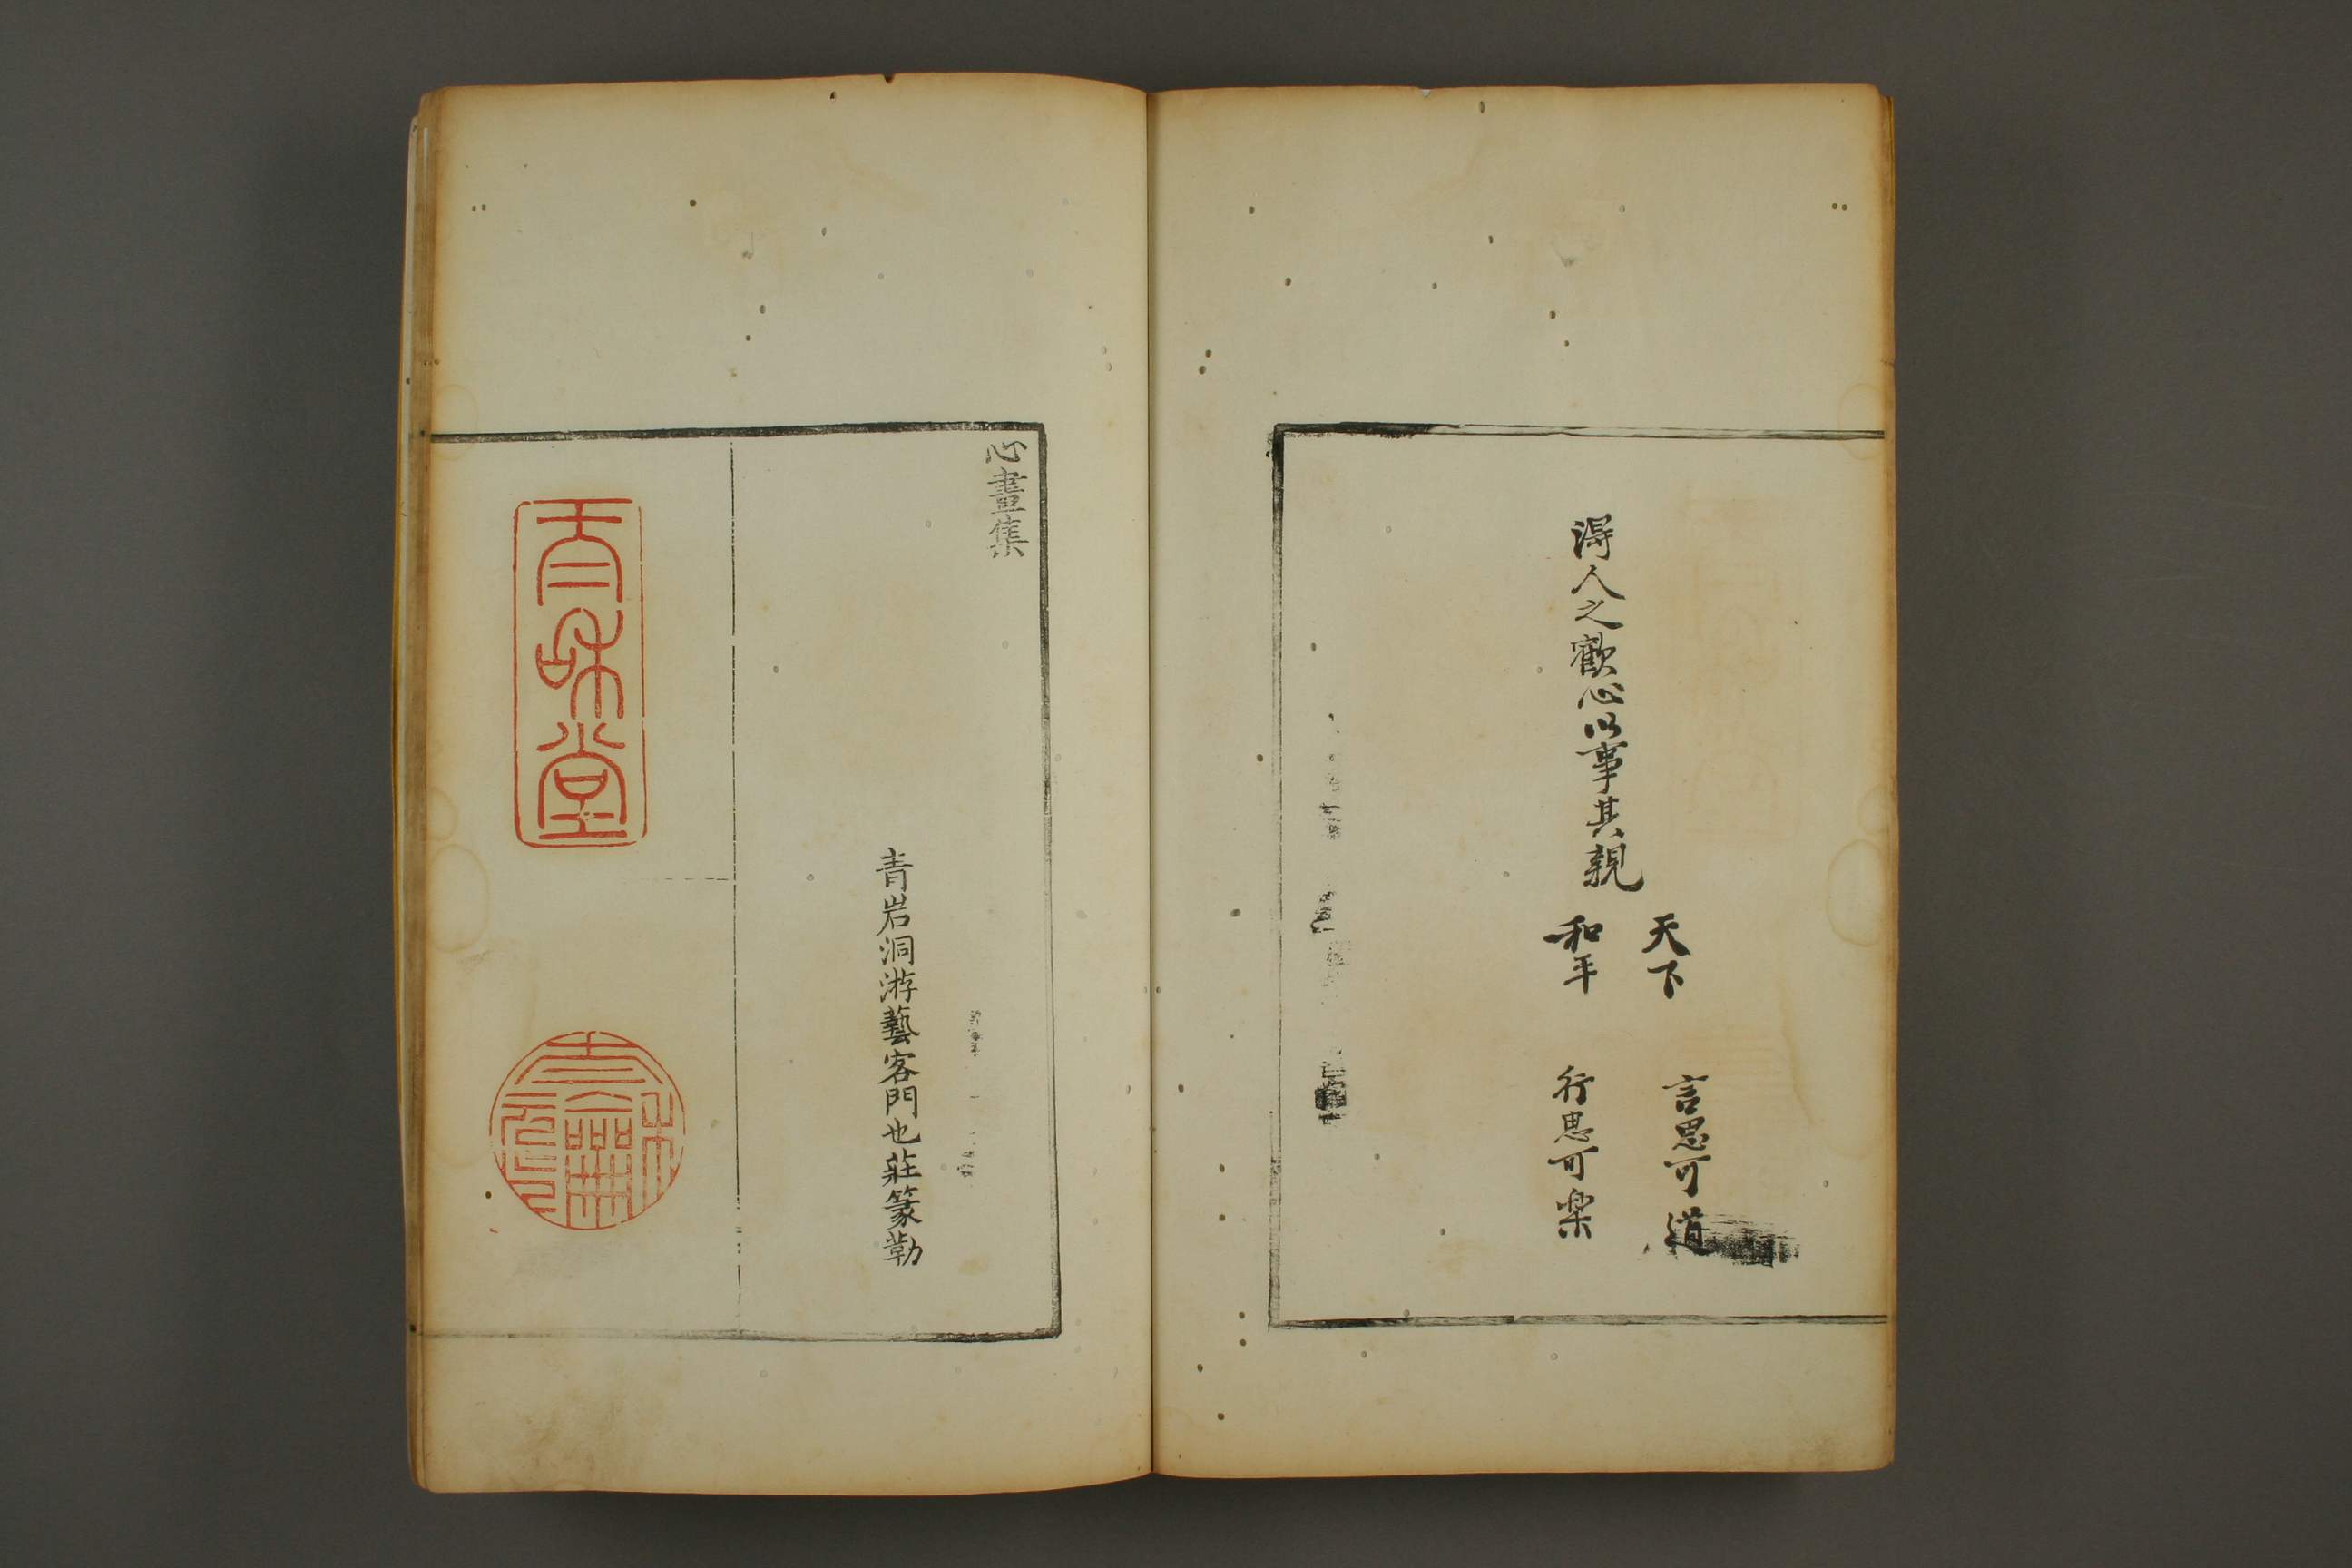 淂人之歡心以事其親
天下
和平
言思可道
行思可楽
心畫集
青岩洞游藝客門也莊篆勒
太和堂